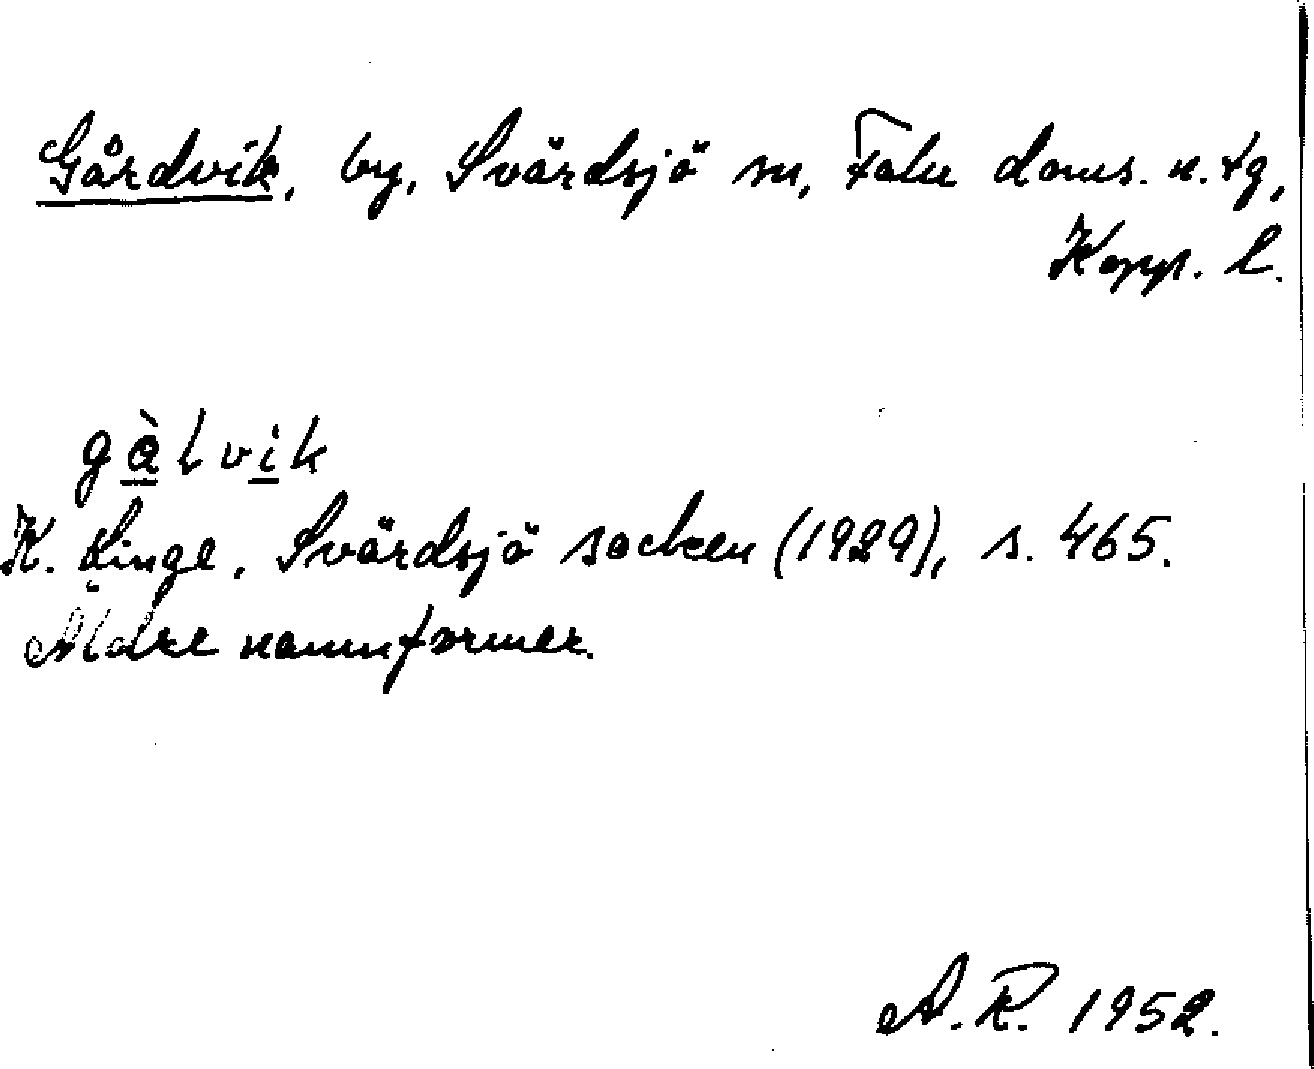 Gårdvik, by, Svärdsjö sn, Falu doms. n. tg,
Kopp. l.
gàlvik
K. Linge, Svärdsjö socken (1929), s. 465.
Äldre namnformer.
A.R. 1952.